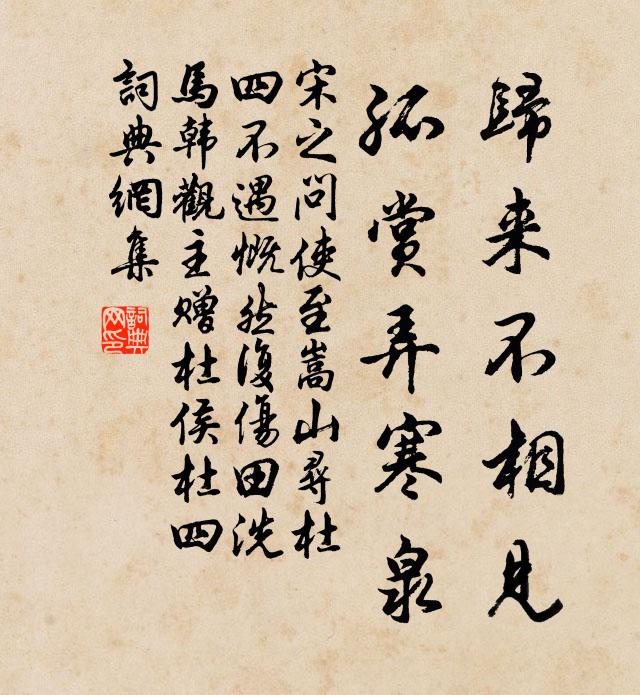 歸来不相見
孤賞弄寒泉
宋之问使至嵩山尋杜
四不遇慨然復傷田洗
馬韩觀主赠杜侯杜四
詞典網集
詞典网印